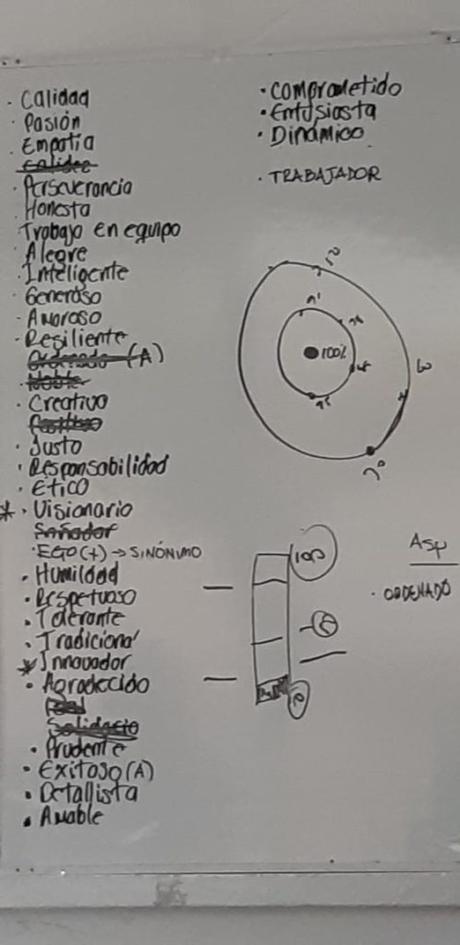 · Calidad
· Pasión
· Empatía
Calidez
· Perseverancia
· Honesta
· Trabajo en equipo
· Alegre
· Inteligente
· Generoso
· Amoroso
· Resiliente
Ordenado (A)
· Noble
· Creativo
Positivo
· Justo
· Responsabilidad
· Etico
* · Visionario
Soñador
· EGO (+) → SINÓNIMO
· Humildad
· Respetuoso
· Tolerante
· Tradicional
* Innovador
· Agradecido
Solidario
· Prudente
· Exitoso (A)
· Detallista
· Amable
· Comprometido
· Entusiasta
· Dinámico
· TRABAJADOR
100%
100
Asp
· ORDENADO